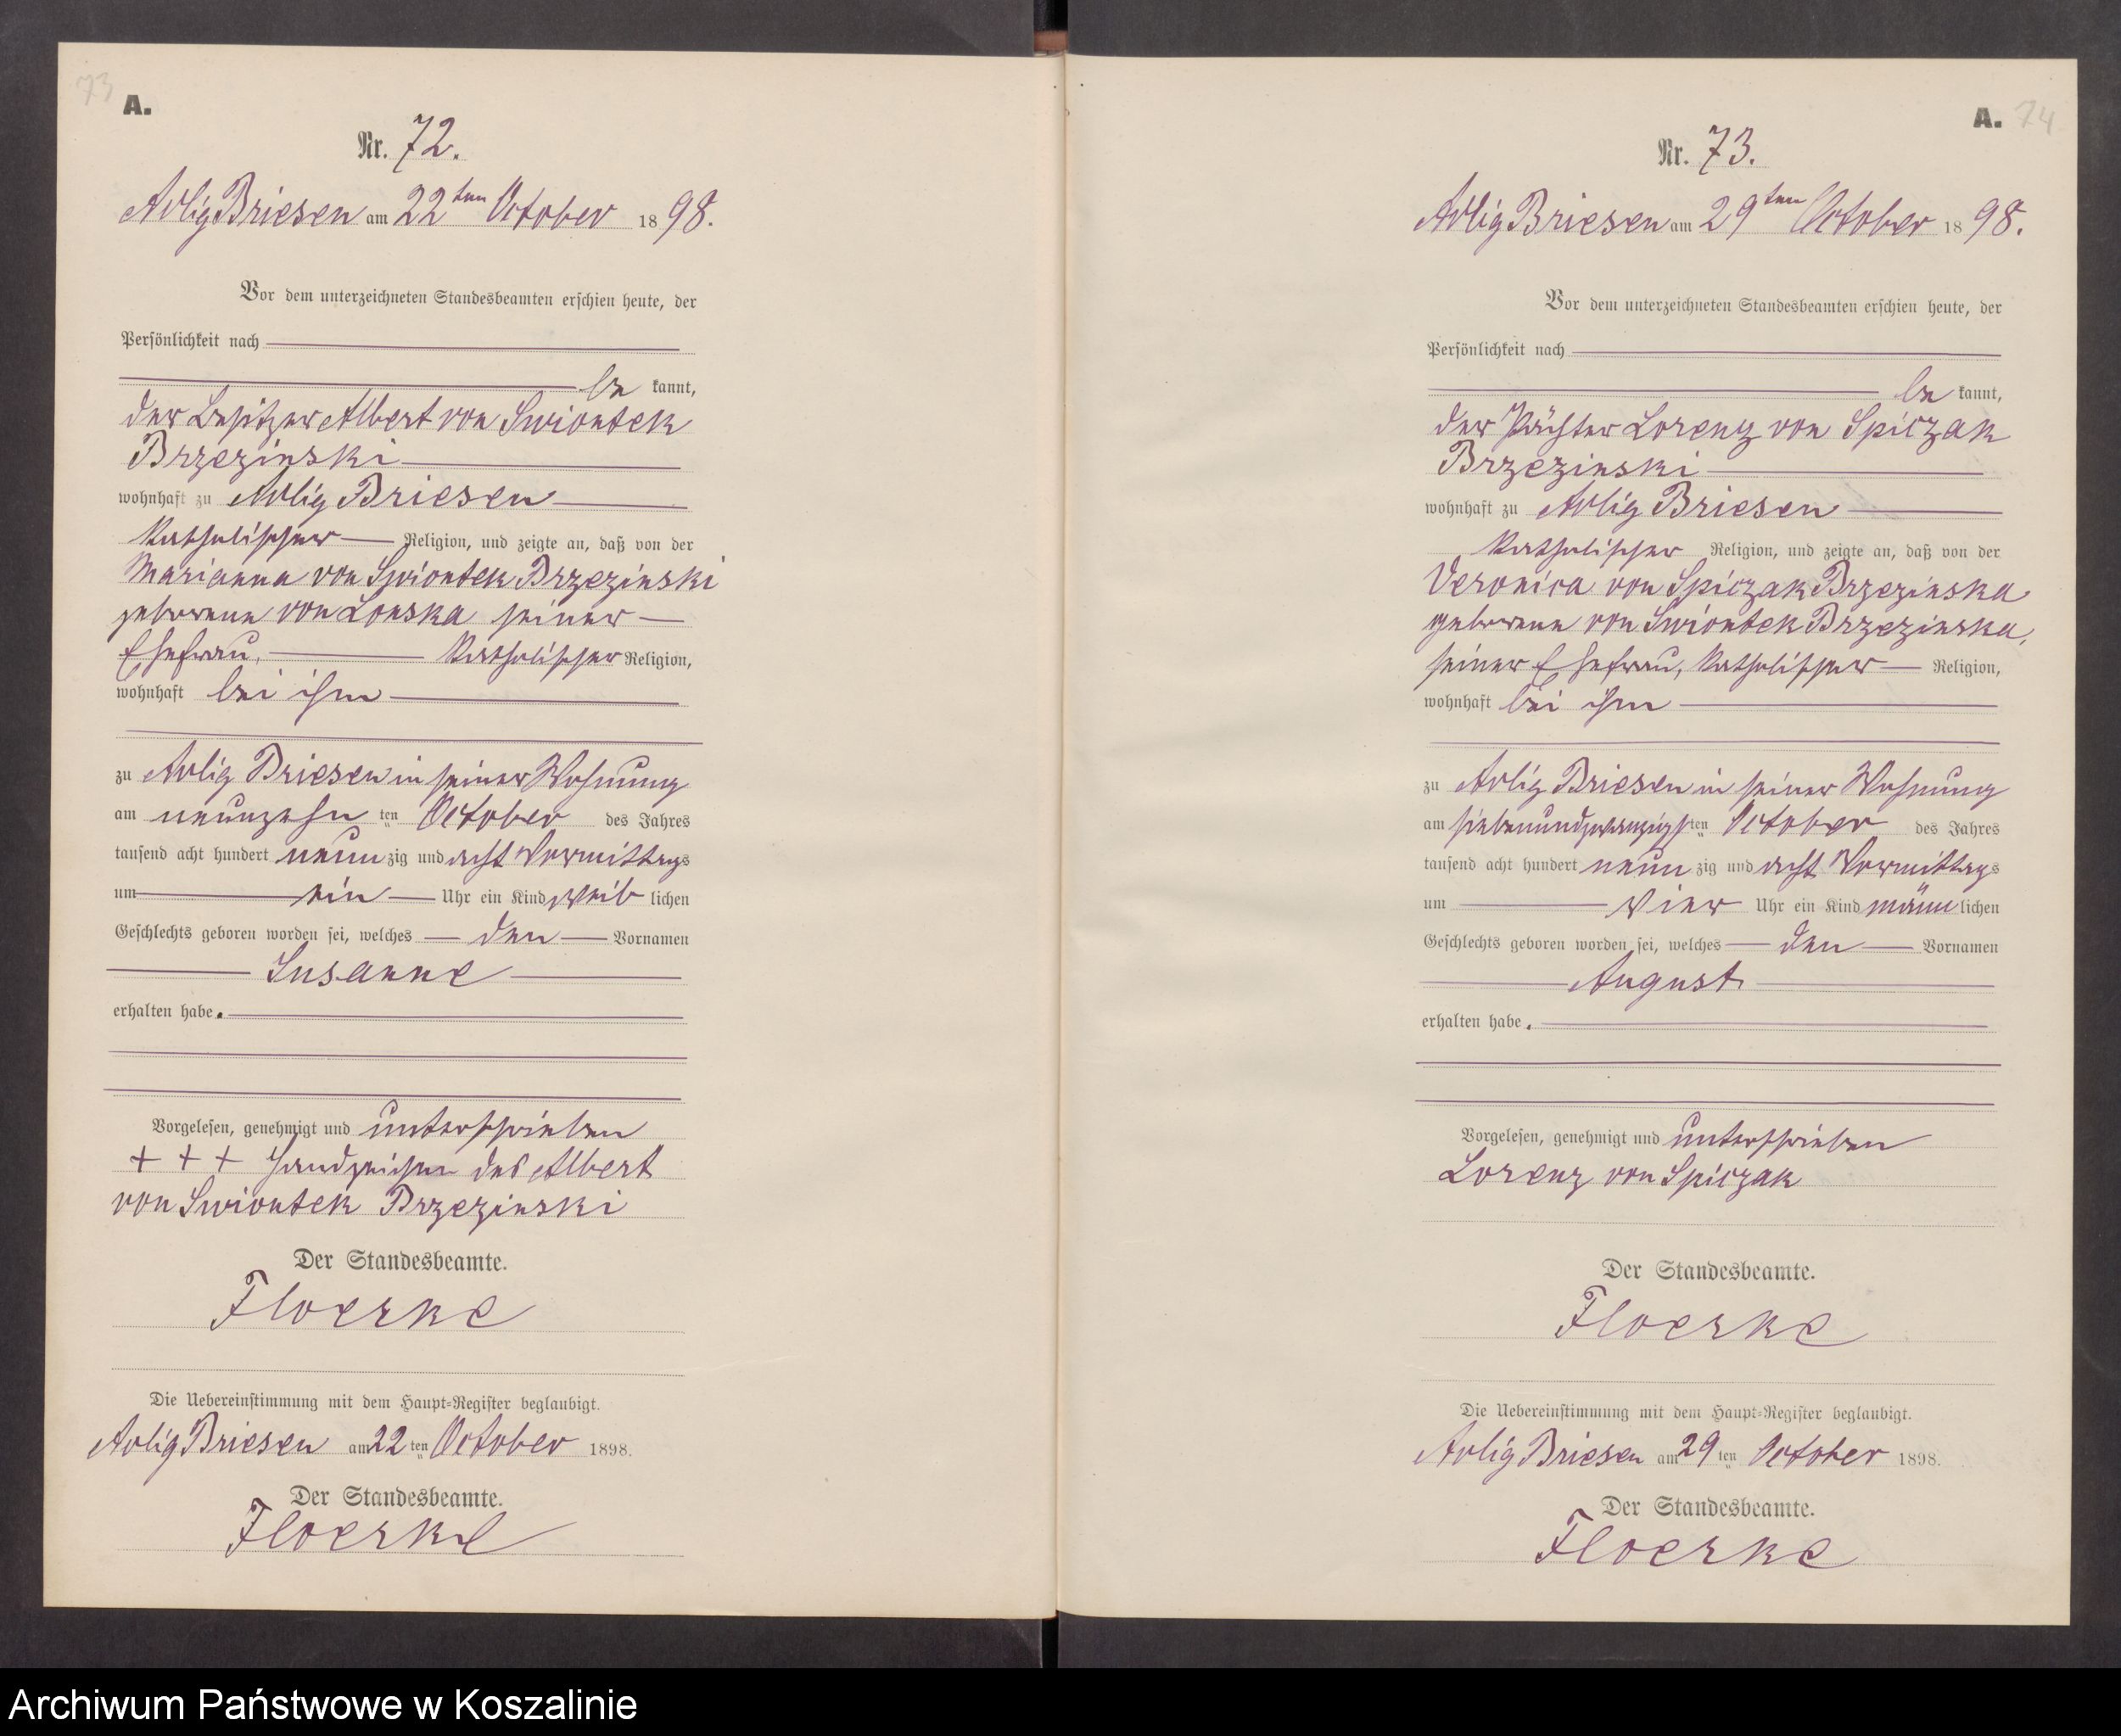 73
A.
Nr. 72.
Adlig Briesen am 22ten October 1898.
Vor dem unterzeichneten Standesbeamten erschien heute, der
Persönlichkeit nach
be kannt,
der Besitzer Albert von Swiontek
Brzezinski
wohnhaft zu Adlig Briesen
katholischer Religion, und zeigte an, daß von der
Marianna von Swiontek Brzezinski
geborenen von Lonska seiner
Ehefrau, katholischer Religion,
wohnhaft bei ihm
zu Adlig Briesen in seiner Wohnung
am neunzehn ten October des Jahres
tausend acht hundert neun zig und acht Vormittags
um ein Uhr ein Kind weib lichen
Geschlechts geboren worden sei, welches den Vornamen
Susanne
erhalten habe.
Vorgelesen, genehmigt und unterschrieben
+ + + Handzeichen des Albert
von Swiontek Brzezinski
Der Standesbeamte.
Floerke
Die Uebereinstimmung mit dem Haupt-Register beglaubigt.
Adlig Briesen am 22 ten October 1898.
Der Standesbeamte.
Floerke
A. 74
Nr. 73.
Adlig Briesen am 29ten October 1898.
Vor dem unterzeichneten Standesbeamten erschien heute, der
Persönlichkeit nach
be kannt,
der Pächter Lorenz von Spiczak
Brzezinski
wohnhaft zu Adlig Briesen
katholischer Religion, und zeigte an, daß von der
Veronica von Spiczak Brzezinska
geborenen von Swiontek Brzezinska,
seiner Ehefrau, katholischer Religion,
wohnhaft bei ihm
zu Adlig Briesen in seiner Wohnung
am siebenundzwanzigs ten October des Jahres
tausend acht hundert neun zig und acht Vormittags
um vier Uhr ein Kind männ lichen
Geschlechts geboren worden sei, welches den Vornamen
August
erhalten habe.
Vorgelesen, genehmigt und unterschrieben
Lorenz von Spiczak
Der Standesbeamte.
Floerke
Die Uebereinstimmung mit dem Haupt-Register beglaubigt.
Adlig Briesen am 29 ten October 1898.
Der Standesbeamte.
Floerke
Archiwum Państwowe w Koszalinie